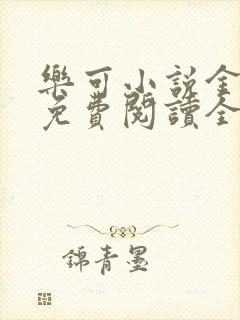 樂可小說全
免費閱讀全
錦青墨